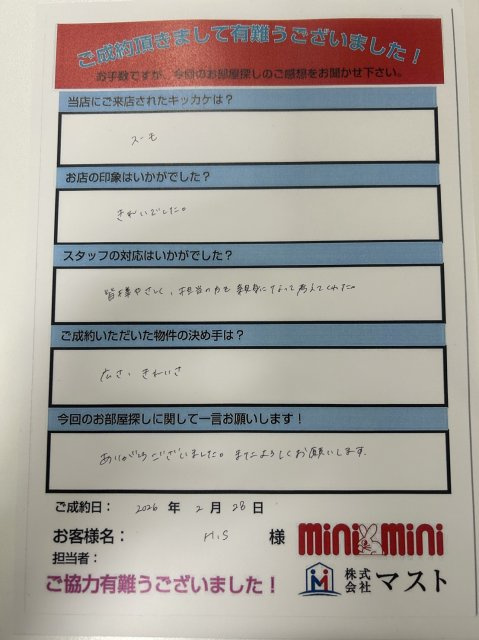 ご成約頂きまして有難うございました！
お手数ですが、今回のお部屋探しのご感想をお聞かせ下さい。
当店にご来店されたキッカケは？
スーモ
お店の印象はいかがでした？
きれいでした。
スタッフの対応はいかがでした？
皆様やさしく、担当の方も親身になって考えてくれた。
ご成約いただいた物件の決め手は？
広さ、きれいさ
今回のお部屋探しに関して一言お願いします！
ありがとうございました。またよろしくお願いします。
ご成約日： 2026 年 2 月 28 日
お客様名： H.S 様
mini mini
担当者：
株式会社マスト
ご協力有難うございました！